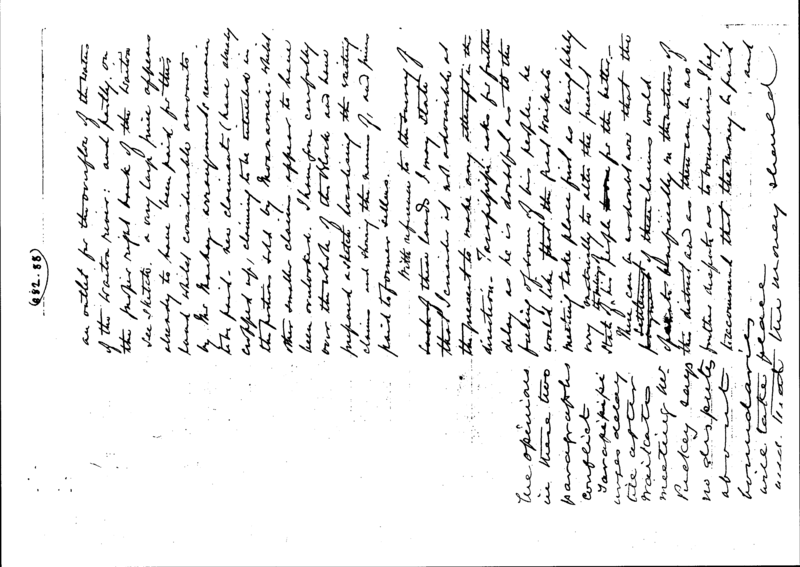 (682-88)
an outlet for the overflow of the waters
of the Wairoa river: and partly on
the proper right bank of the Wairoa
see sketch. a very large price appears
already to have been paid for this
land whilst considerable amounts
by Mr Mackay arrangements remain
to be paid. new claimants have lately
cropped up, claiming to be interested in
the portions sold by whilst
other smaller claims appear to have
been overlooked. I therefore carefully
over the whole of the block and have
prepared a sketch localising the existing
claims and showing the names of, and sums
paid to former sellers.
With reference to the survey of
back of these lands I may state
that I consider it not advisable at
the present to make any attempt in this
direction. Tarapipipi asks for further
delay as he is doubtful as to the
feeling of some of his people. he
would like that the first Waikato
meeting take place first as being likely
very materially to alter the present
state of feeling of his people for the better.
There can be no doubt that the
settlement of these claims would
operate beneficially in the natives of
the district and as there can be no
further disputes as to boundaries I beg
to recommend that the money be paid
The opinions
in these two
paragraphs
conflict
Tarapipipi
urges delay
till after
Waikato
meeting Mr.
Puckey says
no disputes
about
boundaries
will take place
and that the money should